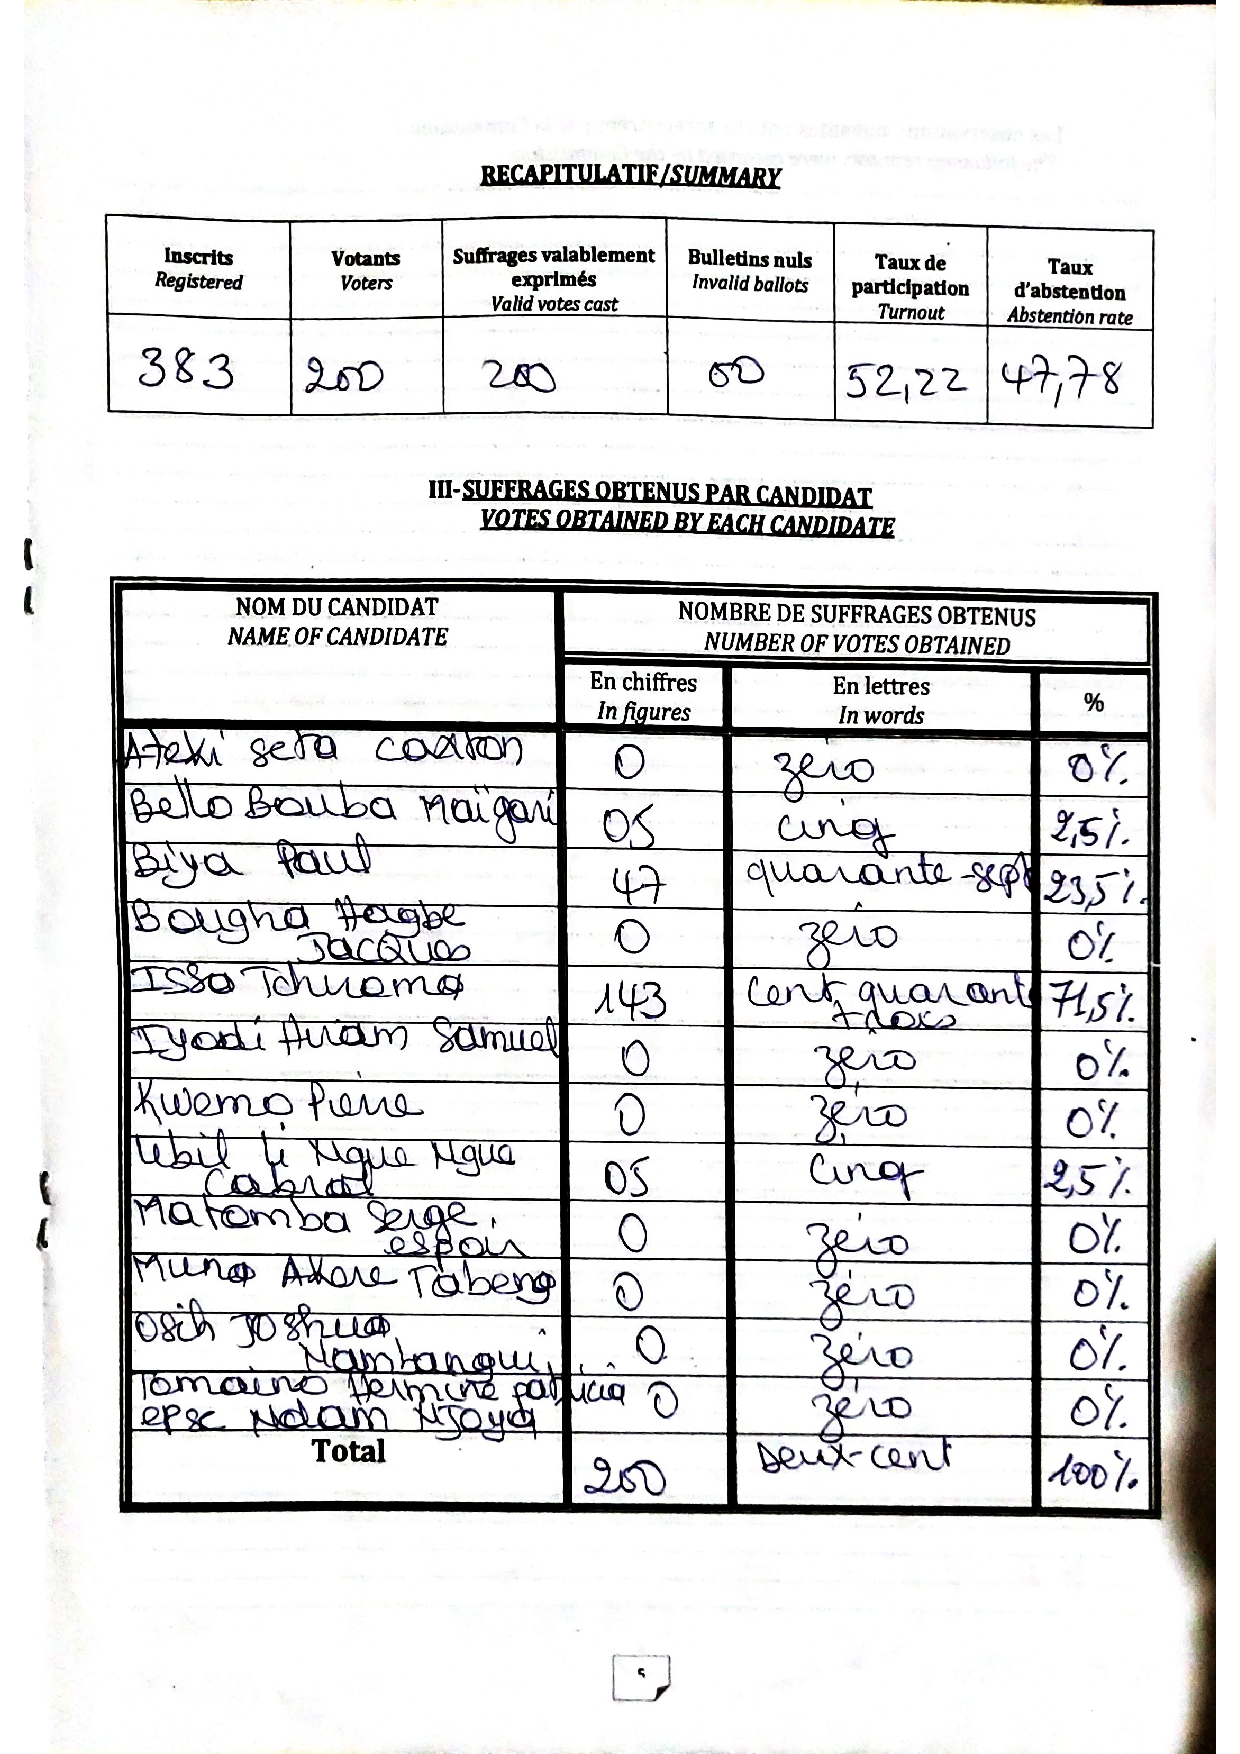 RECAPITULATIF/SUMMARY
Inscrits
Registered
Votants
Voters
Suffrages valablement
exprimés
Valid votes cast
Bulletins nuls
Invalid ballots
Taux de
participation
Turnout
Taux
d'abstention
Abstention rate
383 200 200 00 52,22 47,78
III-SUFFRAGES OBTENUS PAR CANDIDAT
VOTES OBTAINED BY EACH CANDIDATE
NOM DU CANDIDAT
NAME OF CANDIDATE
NOMBRE DE SUFFRAGES OBTENUS
NUMBER OF VOTES OBTAINED
En chiffres
In figures
En lettres
In words
%
Ateki Seta Caxton 0 zéro 0%
Bello Bouba Maïgari 05 cinq 2,5%
Biya Paul 47 quarante-sept 23,5%
Bougha Hagbe
Jacques 0 zéro 0%
Issa Tchiroma 143 cent quarante
trois 71,5%
Iyodi Hiram Samuel 0 zéro 0%
Kwemo Pierre 0 zéro 0%
Libii Li Ngue Ngue
Cabral 05 cinq 2,5%
Matomba Serge
espoir 0 zéro 0%
Muna Akere Tabeng 0 zéro 0%
Osih Joshua
Nambangui 0 zéro 0%
Tomaino Hermine patricia
epse Ndam Njoya 0 zéro 0%
Total 200 Deux-cent 100%
5